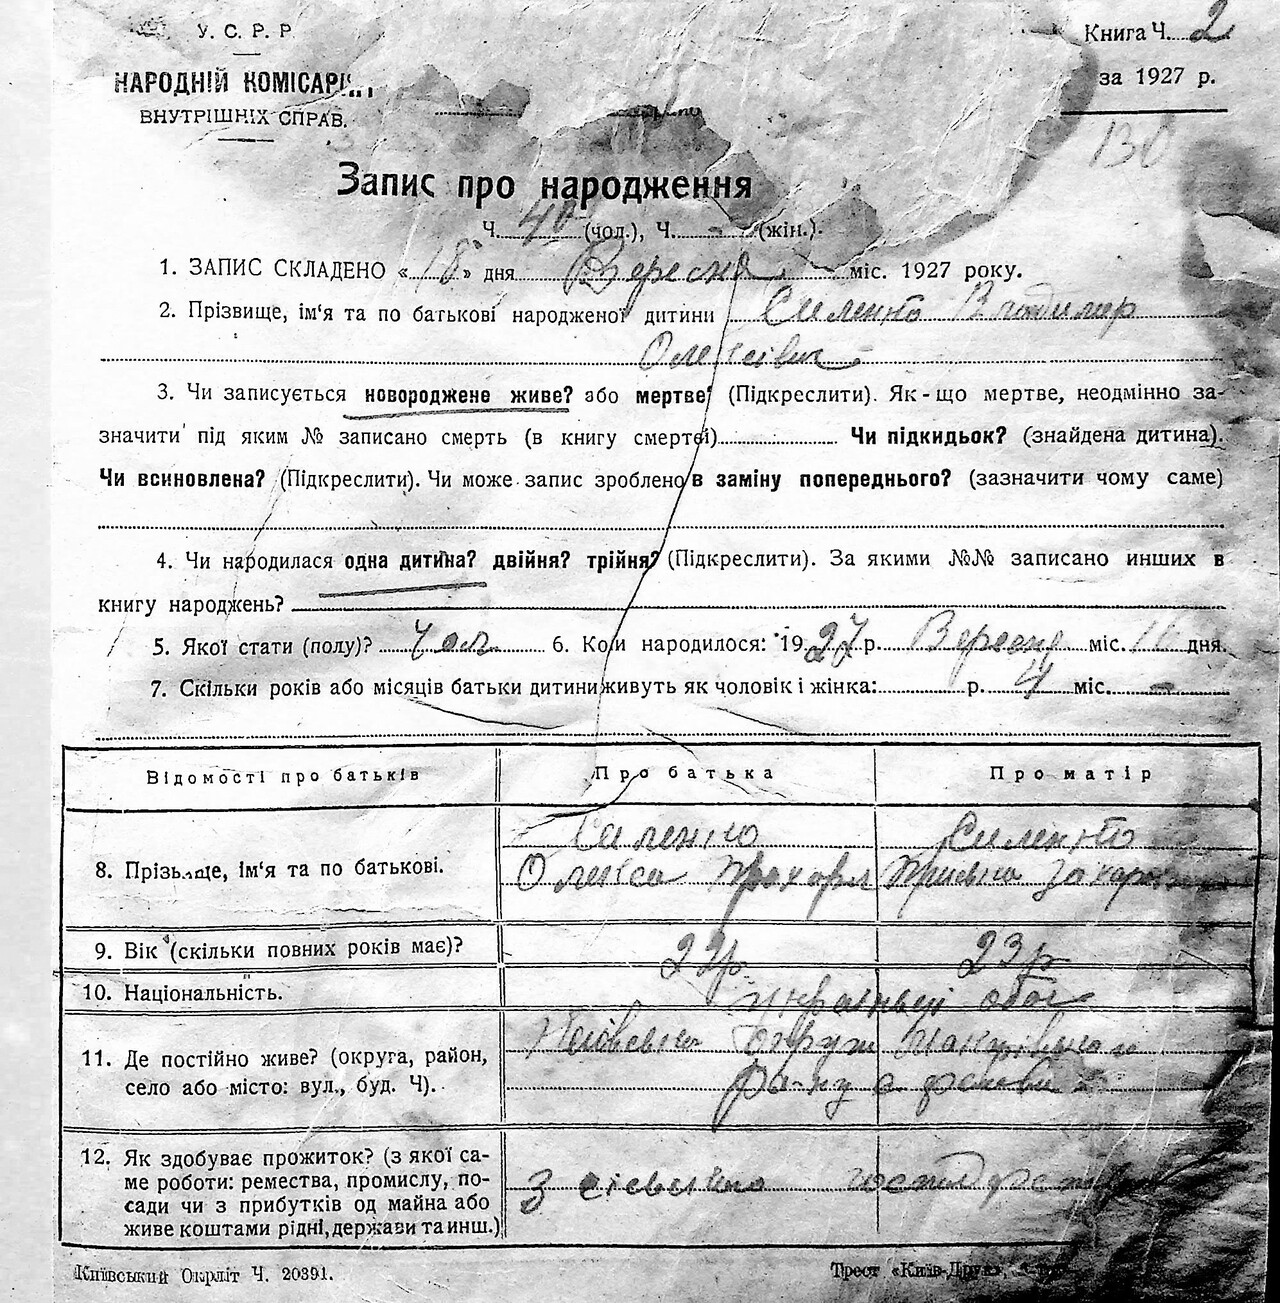 У. С. Р. Р
Книга Ч. 2
НАРОДНІЙ КОМІСАРІ
за 1927 р.
ВНУТРІШНІХ СПРАВ.
130
Запис про народження
Ч. 40 (чол.), Ч. - (жін.).
1. ЗАПИС СКЛАДЕНО «18» дня Вересня міс. 1927 року.
2. Прізвище, ім'я та по батькові народженої дитини Силенко Владимир
Олексієвич
3. Чи записується новороджене живе? або мертве? (Підкреслити). Як-що мертве, неодмінно за-
значити під яким № записано смерть (в книгу смертей) Чи підкидьок? (знайдена дитина).
Чи всиновлена? (Підкреслити). Чи може запис зроблено в заміну попереднього? (зазначити чому саме)
4. Чи народилася одна дитина? двійня? трійня? (Підкреслити). За якими №№ записано инших в
книгу народжень?
5. Якої стати (полу)? Чол. 6. Коли народилося: 1927 р. Вересня міс. 16 дня.
7. Скільки років або місяців батьки дитини живуть як чоловік і жінка: р. 4 міс. -
Відомості про батьків Про батька Про матір
Силенко Силенко
8. Прізьище, ім'я та по батькові. Олекса Прохор Захаров
9. Вік (скільки повних років має)? 22 р. 23 р
10. Національність. українці обоє
11. Де постійно живе? (округа, район, Київська Округ
село або місто: вул., буд. Ч). р-ну с
12. Як здобуває прожиток? (з якої са-
ме роботи: ремества, промислу, по- З сільського господарства
сади чи з прибутків од майна або
живе коштами рідні, держави та инш.)
Київський Окрліт Ч. 20391. Трест «Київ-Друк»,